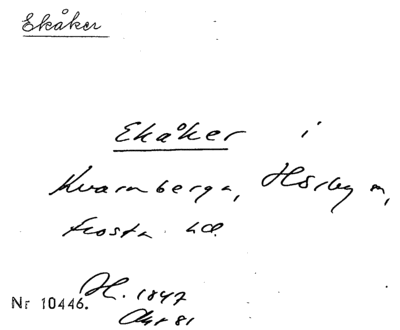 Ekåker
Ekåker i
Kvarnberga, Hörby sn,
Frosta hd.
H. 1847
Nr 10446.
Akt 81